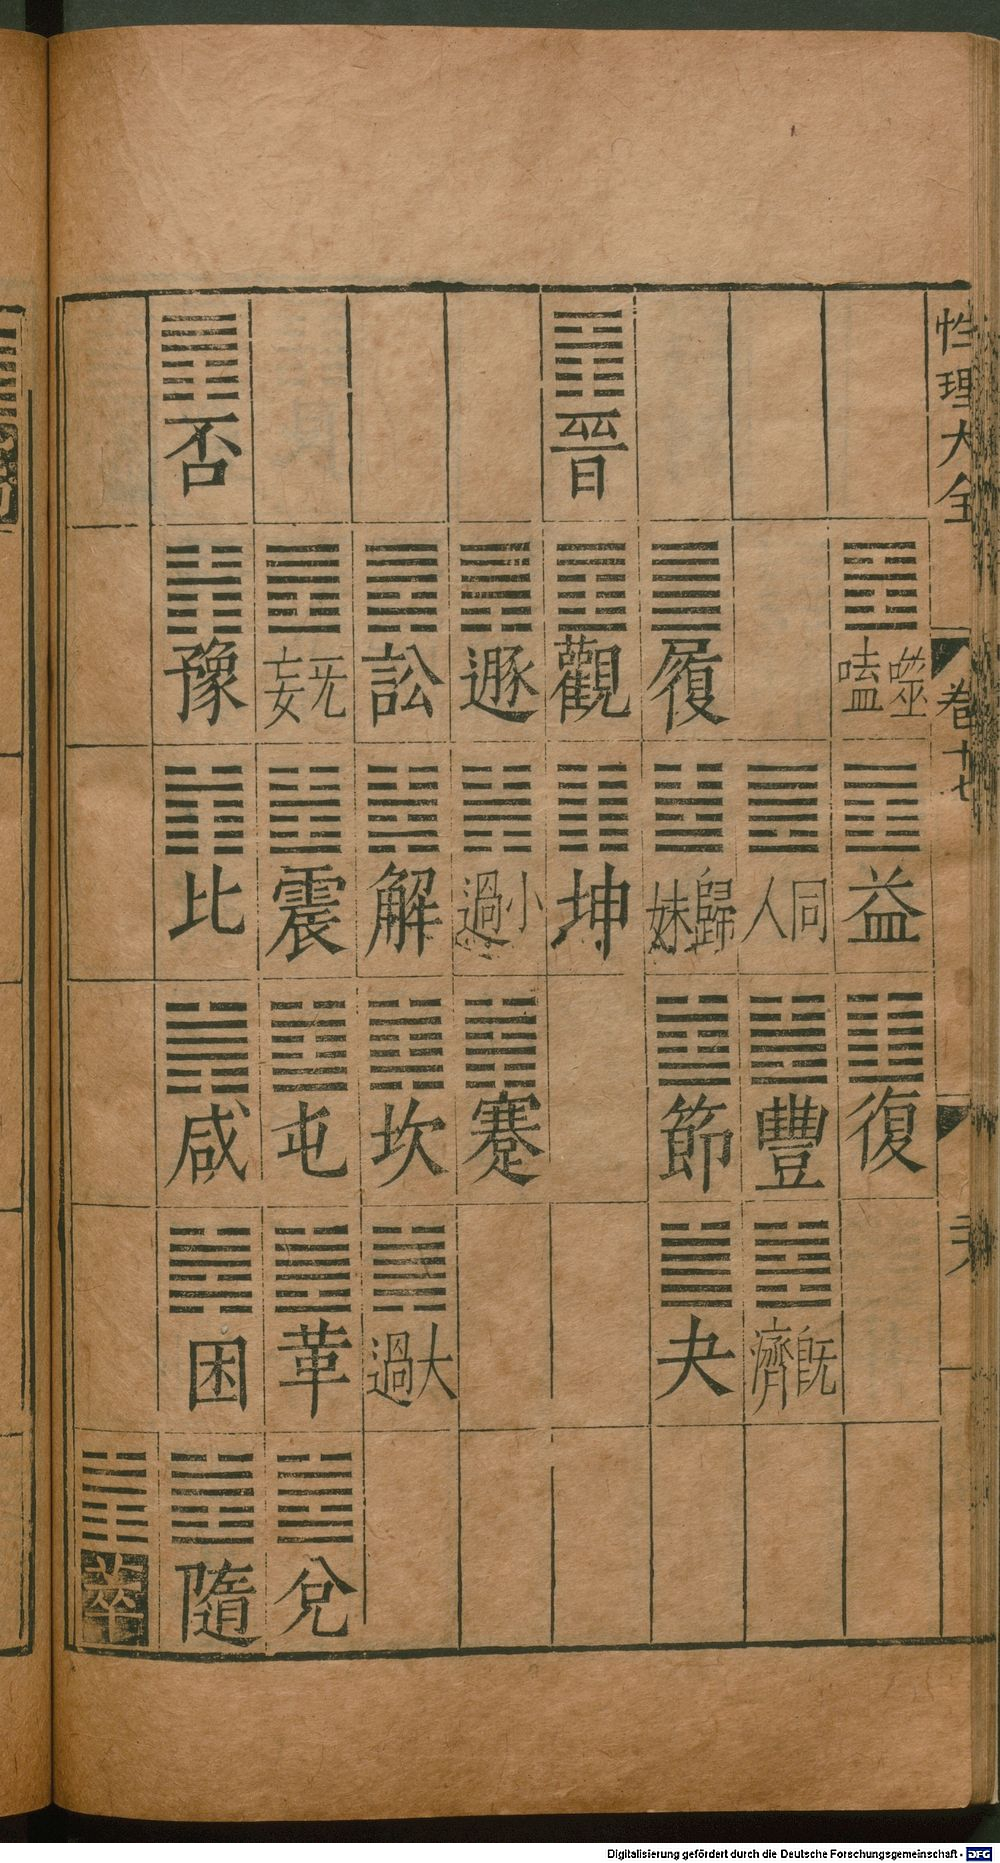 性理大全 卷十七
噬嗑 益 復
同人 豐 旣濟
履 歸妹 節 夬
晉 觀 坤
遯 小過 蹇
訟 解 坎 大過
无妄 震 屯 革 兌
否 豫 比 咸 困 隨
萃
Digitalisierung gefördert durch die Deutsche Forschungsgemeinschaft - DFG